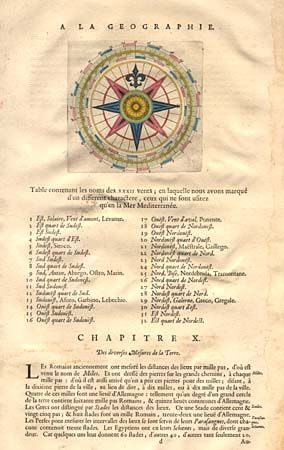 A LA GEOGRAPHIE.
Table contenant les noms des XXXII vents, en laquelle nous avons marqué
d'un different charactere, ceux qui ne sont usitez
qu'en la Mer Mediterranée.
1 Est, Solaire, Vent d'amont, Levante.
2 Est quart de Sudest.
3 Est Sudest.
4 Sudest quart d'Est.
5 Sudest, Siroco.
6 Sudest quart de Sud.
7 Sud Sudest.
8 Sud quart de Sudest.
9 Sud, Auster, Ostro, Marin.
10 Sud quart de Sudouest.
11 Sud Sudouest.
12 Sudouest quart de Sud.
13 Sudouest, Garbino, Lebechio.
14 Sudouest quart d'Ouest.
15 Ouest Sudouest.
16 Ouest quart de Sudouest.
17 Ouest, Vent d'aval, Ponente.
18 Ouest quart de Nordouest.
19 Ouest Nordouest.
20 Nordouest quart d'Ouest.
21 Nordouest, Maëstrale, Galliego.
22 Nordouest quart de Nord.
23 Nord Nordouest.
24 Nord quart de Nordouest.
25 Nord, Tramontane.
26 Nord quart de Nordest.
27 Nord Nordest.
28 Nordest quart de Nord.
29 Nordest, Galerne, Greco, Gregale.
30 Nordest quart d'Est.
31 Est Nordest.
32 Est quart de Nordest.
CHAPITRE X.
Des diverses Mesures de la Terre.
LEs Romains anciennement ont mesuré les distances des lieux par mille pas, d'où est
venu le nom de Miles. Ils ont dressé des pierres sur les grands chemins, à chaque
mille pas: d'où est aussi arrivé qu'on a pris ces pierres pour des milles; disant, à
la dixiéme pierre de la ville, au lieu de dire, à dix milles, ou à dix mille pas de la ville.
Quatre de ces milles font une lieuë d'Allemagne: tellement qu'un degré d'un grand cercle de
la terre contient soixante mille pas Romains, & consequemment quinze lieuës d'Allemagne.
Les Grecs ont distingué par Stades les distances des lieux. Or une Stade contient cent &
vingt-cinq pas; & huit stades font un mille Romain, & trente-deux une lieuë d'Allemagne.
Les Perses pour mesurer les intervalles des lieux se sont servis de leurs Parasanges, dont chacune
contenoit trente stades. Les Egyptiens ont eu leurs Schœnes, mais de diverse grandeur.
Car quelques uns leur donnent 60 stades, d'autres 40, d'autres tant seulement 20.
d
Au-